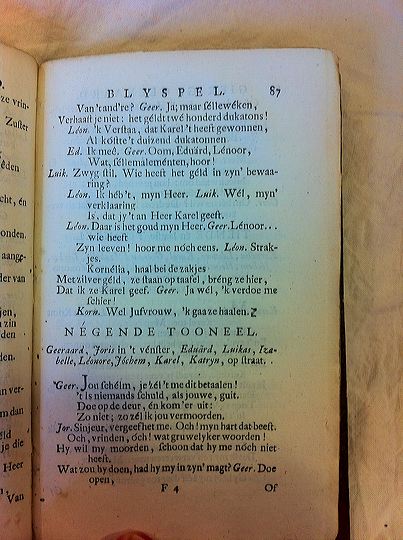 BLYSPEL. 87
Van 'tand're? Geer. Ja; maar séllewéken,
Verhaast je niet: het géldt twé honderd dukatons!
Léon. 'k Verstaa, dat Karel 't heeft gewonnen,
Al kóstte 't duizend dukatonnen
Ed. Ik meê. Geer. Oom, Eduärd, Lénoor,
Wat, séllemaleménten, hoor!
Luik. Zwyg stil. Wie heeft het géld in zyn' bewaa-
ring?
Léon. Ik héb't, myn Heer. Luik. Wél, myn'
verklaaring
Is, dat jy't an Heer Karel geeft.
Léon. Daar is het goud myn Heer. Geer. Lénoor...
wie heeft
Zyn leeven! hoor me nóch eens. Léon. Strak-
jes.
Kornélia, haal bei de zakjes
Met zilver géld, ze staan op taafel, bréng ze hier,
Dat ik ze Karel geef. Geer. Ja wél, 'k verdoe me
schier!
Korn. Wel Jufvrouw, 'k gaaze haalen.
NÉGENDE TOONEEL.
Geeraard, Joris in 't vénster, Eduärd, Luikas, Iza-
belle, Léonore, Jóchem, Karel, Katryn, op straat.
Geer. Jou schélm, je zél 't me dit betaalen!
't is niemands schuld, als jouwe, guit.
Doe op de deur, én kom'er uit:
Zo niet; zo zél ik jou vermoorden.
Jor. Sinjeur, vergeef het me. Och! myn hart dat beeft.
Och, vrinden, óch! wat gruwelyker woorden!
Hy wil my moorden, schoon dat hy me nóch niet
heeft.
Wat zou hy doen, had hy my in zyn' magt? Geer. Doe
open,
F 4 Of